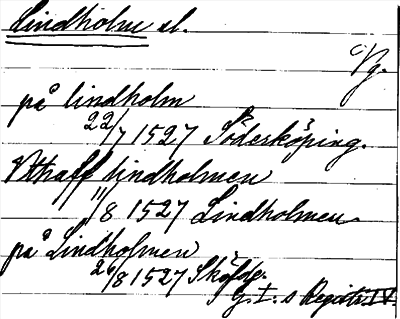 Lindholm el.
Vg.
på lindholm
22/7 1527 Söderköping.
Vthaff lindholmen
11/8 1527 Lindholmen
på Lindholmen
26/8 1527 Sköfde.
G. I. s Registr. IV.